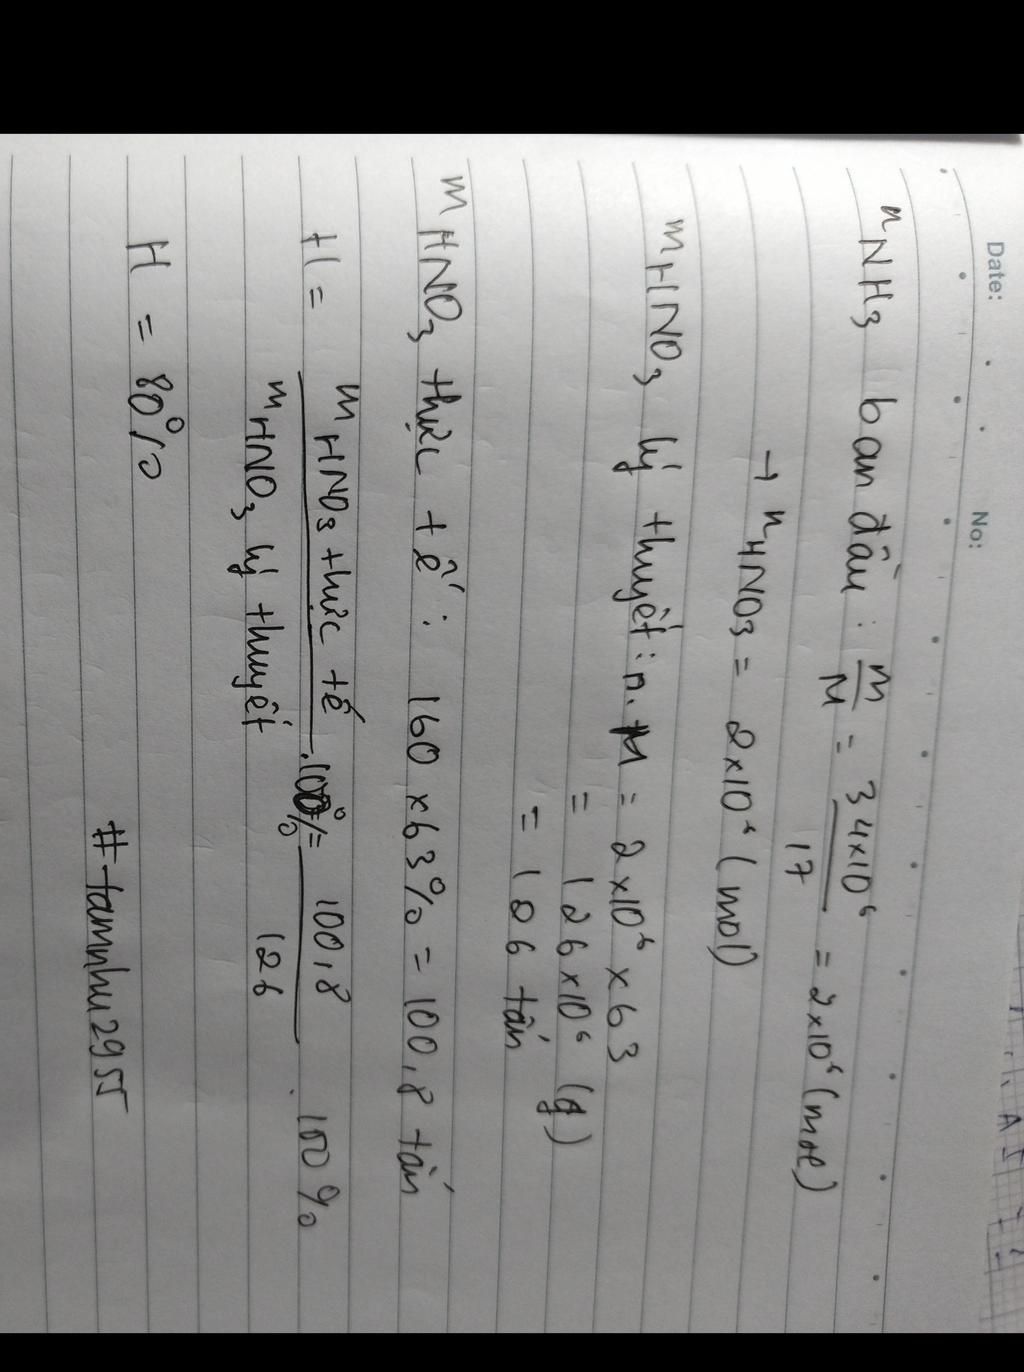 Date: No:
n NH3 ban đầu : m/M = 34x10⁶/17 = 2x10⁶ (mol)
→ n HNO3 = 2x10⁶ (mol)
m HNO3 lý thuyết : n.M = 2x10⁶ x 63
= 126x10⁶ (g)
= 126 tấn
m HNO3 thực tế : 160 x 63% = 100,8 tấn
H = m HNO3 thực tế / m HNO3 lý thuyết .100% = 100,8/126 . 100%
H = 80%
#tamnhu2955